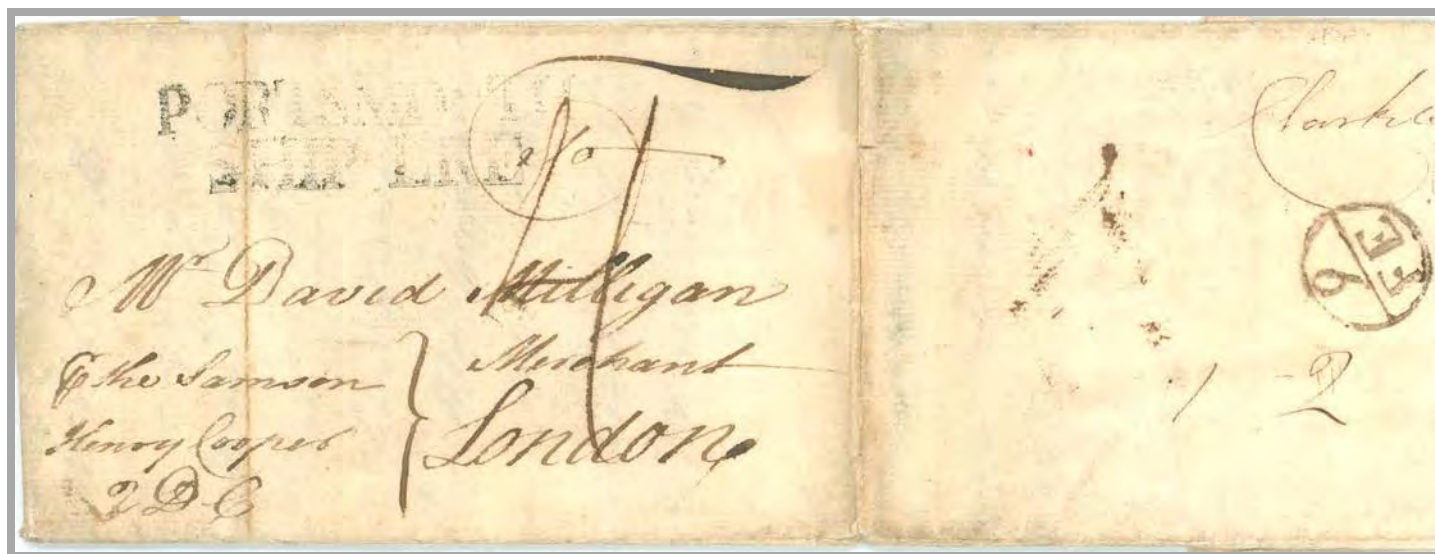 PORTSMOUTH
SHIP LRE
Mr David Milligan
Merchant
London
⅌ the Samson
Henry Cooper
2 D C
Clarke
9
FE
1 2